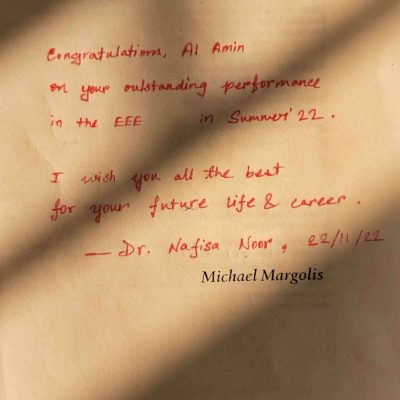 Congratulations, Al Amin
on your outstanding performance
in the EEE in Summer'22.
I wish you all the best
for your future life & career.
— Dr. Nafisa Noor, 22/11/22
Michael Margolis